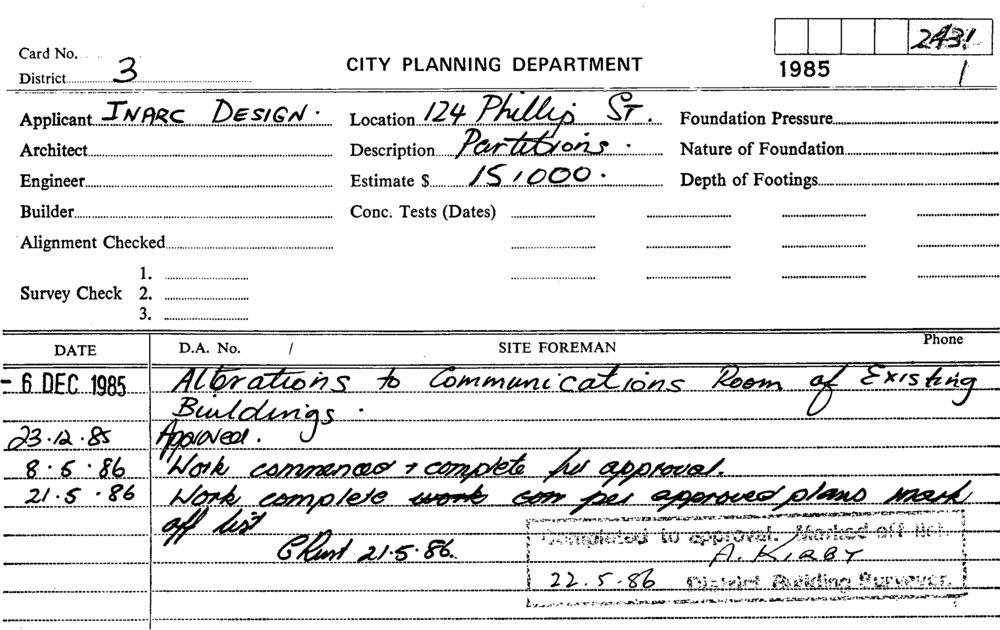 Card No.
District 3
CITY PLANNING DEPARTMENT
2431
1985 1
Applicant INARC DESIGN.
Location 124 Phillip ST.
Foundation Pressure
Architect
Description Partitions.
Nature of Foundation
Engineer
Estimate $ 15,000.
Depth of Footings
Builder
Conc. Tests (Dates)
Alignment Checked
Survey Check
1.
2.
3.
DATE D.A. No. / SITE FOREMAN Phone
- 6 DEC 1985 Alterations to Communications Room of Existing
Buildings.
23.12.85 Approved.
8.5.86 Work commenced + complete per approval.
21.5.86 Work complete work com per approved plans mark
off list
21.5.86.
Completed to approval. Marked off list.
A. KIRBY
22.5.86 District Building Surveyor.